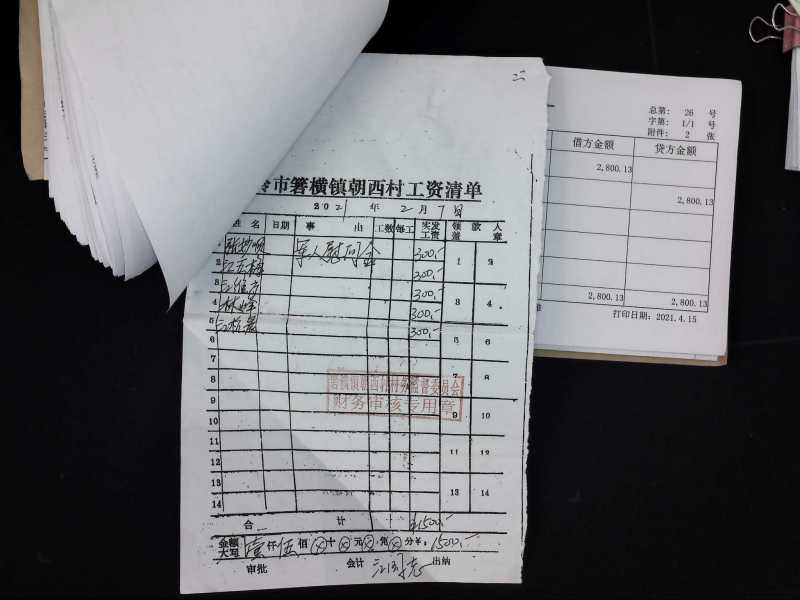 总第: 26 号
字第: 1/1 号
附件: 2 张
借方金额 贷方金额
2,800.13
2,800.13
2,800.13 2,800.13
打印日期: 2021.4.15
市箬横镇朝西村工资清单
2021 年 2 月 7日
姓名 日期 事由 工数 每工 实发工资 领款人盖章
1 军人慰问金 300.- 1 2
2 300.-
3 300.- 3 4
4 林 300.-
5 300.- 5 6
6
7 7 8
8
箬横镇朝西村村务监督委员会
财务审核专用章
9 9 10
10
11 11 12
12
13 13 14
14
合计 ¥1500.-
金额大写 壹仟伍佰⊗十⊗元⊗角⊗分¥: 1500.-
审批 会计 出纳